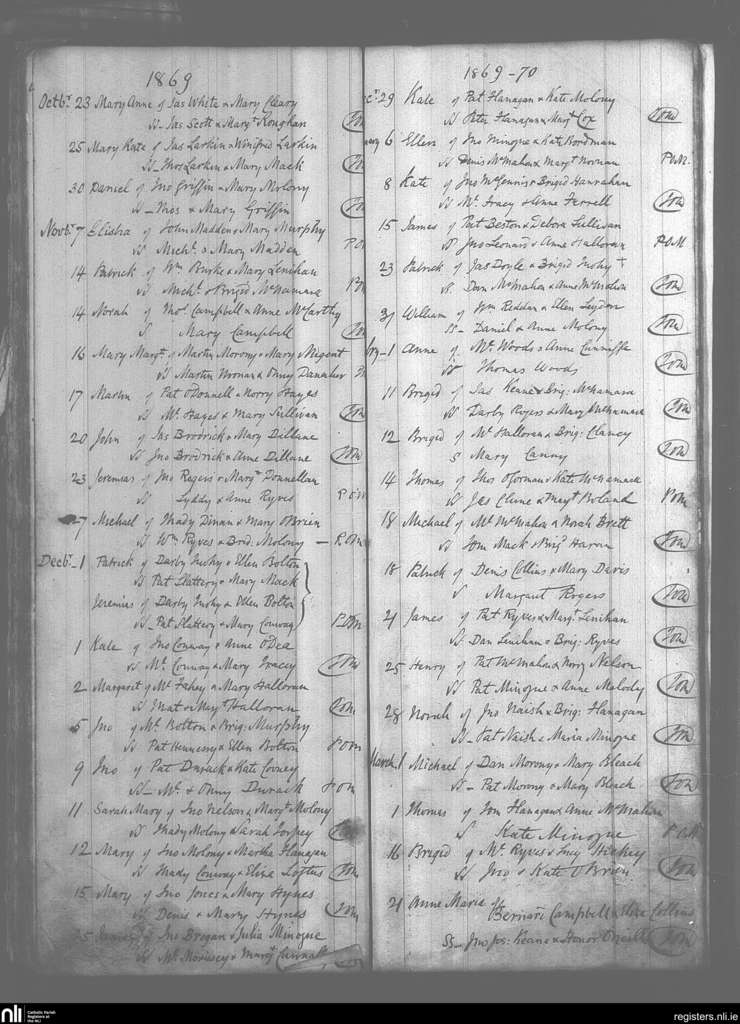 1869
Octbr. 23 Mary Anne of Jas White & Mary Cleary
SS Jas Scott & Margt. Houghan
25 Mary Kate of Jas Larkin & Winifred Larkin
SS Thos Larkin & Mary Mack
30 Daniel of Jno Griffin & Mary Molony
SS Thos & Mary Griffin
Novbr. 7 of John Madden & Mary Murphy
SS Michl. & Mary Madden
14 Patrick of Wm Burke & Mary Lenihan
SS Michl. & Briged McNamara
14 Norah of Thos. Campbell & Anne McCarthy
S Mary Campbell
16 Mary Margt. of Martin Morony & Mary Nugent
SS Martin & Onny
17 Martin of Pat ODonnell & Norry Hayes
SS Ml. Hayes & Mary Sullivan
20 John of Jas Brodrick & Mary Dillane
SS Jno Brodrick & Anne Dillane
23 Jeremias of Jno Rogers & Margt. Donnellan
SS Lyddy & Anne Ryves
27 Michael of Thady Dinan & Mary OBrien
SS Wm Ryves & Brid: Molony POM
Decbr. 1 Patrick of Darby & Ellen Bolton
SS Pat Slattery & Mary Mack
Jeremias of Darby & Ellen Bolton
SS Pat Slattery & Mary Conway POM
1 Kate of Jno Conway & Anne ODea
SS Ml. Conway & Mary Tracey
2 Margaret of Ml. Fahey & Mary Halloran
SS Mat & Margt. Halloran
5 Jno of Ml. Bolton & Brig: Murphy
SS Pat Hennessy & Ellen Bolton POM
9 Jno of Pat Durack & Kate Cooney
SS Ml. & Onny Durack POM
11 Sarah Mary of Jno Nelson & Margt. Molony
SS Thady Molony & Sarah Torpey
12 Mary of Jno Molony & Martha Flanagan
SS Thady Conway & Eliza Loftus
15 Mary of Jno Jones & Mary Hynes
SS Denis & Mary Hynes
25 James of Jno Brogan & Julia Minogue
SS Ml. Morissey & Margt.
1869-70
29 Kate of Pat Flanagan & Kate Molony
SS Peter Flanagan & Margt. Cox
6 Ellen of Jno Minogue & Kate Boordman
SS Denis McMahon & Margt. Noonan POM
8 Kate of Jno McGennis & Briged Hanrahan
SS Ml. Tracy & Anne Ferrell
15 James of Pat Beston & Debora Sullivan
SS Jno Leonard & Anne Halloran POM
23 Patrick of Jas Doyle & Briged
SS. Dan McMahon & Anne McMahon
31 William of Jim Reddan & Ellen Lyddon
SS Daniel & Anne Molony
1 Anne of Ml. Woods & Anne Cunniffe
SS Thomas Woods
11 Briged of Jas Keane & Brig: McNamara
SS Darby Rogers & Mary McNamara
12 Briged of Ml. Halloran & Brig: Clancy
S Mary Canny
14 Thomas of Thos OGorman & Kate McNamara
SS Jas Clune & Margt. Boland POM
18 Michael of Ml. McMahon & Norah Brett
SS Tom Mack & Brig. Haron
18 Patrick of Denis Collins & Mary Davis
S Margaret Rogers
21 James of Pat Ryves & Margt. Lenihan
SS. Dan Lenihan & Brig: Ryves
25 Henry of Pat McMahon & Norry Nelson
SS Pat Minogue & Anne Melody
28 Norah of Jno Naish & Brig: Flanagan
SS Pat Naish & Maria Minogue
March 1 Michael of Dan Morony & Mary Bleach
SS Pat Morony & Mary Bleach
1 Thomas of Tom Flanagan & Anne McMahon
S Kate Minogue POM
16 Briged of Ml. Ryves & Lucy Hickey
SS Jno & Kate OBrien
21 Anne Maria of
Bernard Campbell & Eliza Collins
SS Jno Jos: Keane & Honor
nli
Catholic Parish
Registers at
the NLI
registers.nli.ie